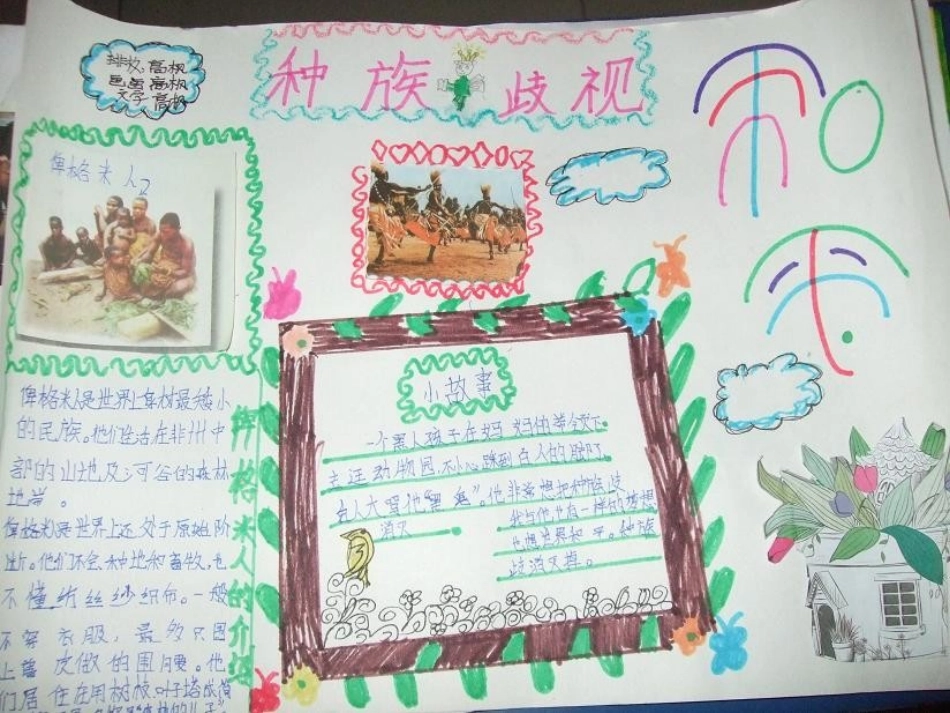 排版:高帆
色画:高帆
文字:高帆
种族歧视
俾格米人2
俾格米人是世界上身材最矮小
的民族。他们生活在非州中
部的山地及河谷的森林
地带。
俾格米人是世界上还处于原始阶
段。他们不会种地和畜牧,也
不懂纺丝纱织布。一般
不穿衣服,最多只围
上兽皮做的围腰。他
们居住在用树枝、叶子搭成简
俾格米人的介绍
小故事
一个黑人孩子在妈妈的带领下
去逛动物园,不小心踩到白人的脚了
白人大骂他“黑鬼”。他非常想把种族歧
消灭
我与他也有一样的梦想
也想世界和平。种族
歧消灭掉。